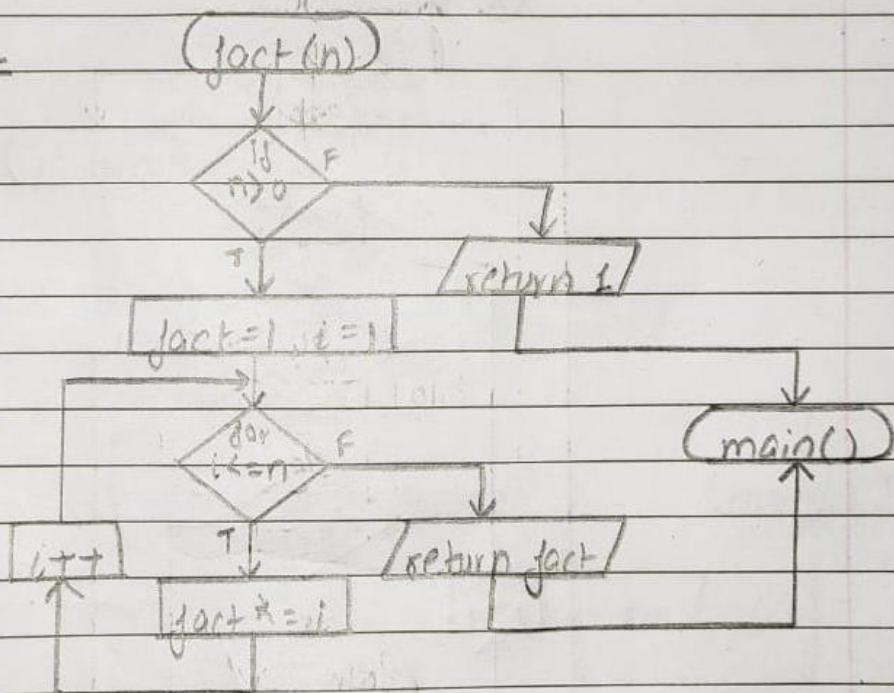 fact(n)
If
n>0
F
T
return 1
fact=1, i=1
for
i<=n
F
main()
T
i++
return fact
fact*=i